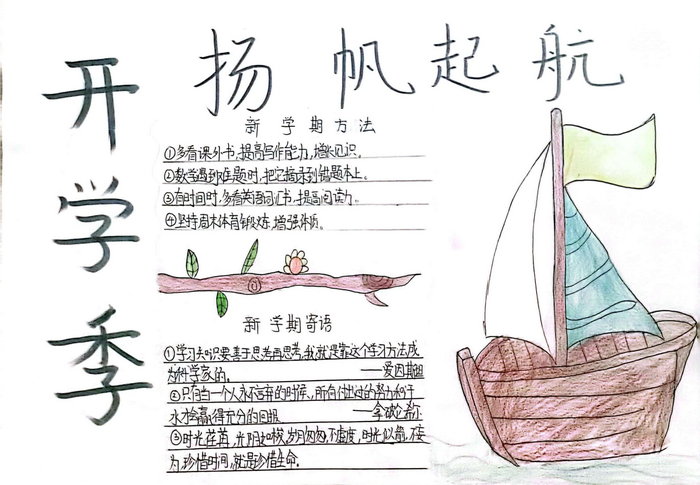 开学季
扬帆起航
新学期方法
①多看课外书,提高写作能力,增长见识。
②数学遇到难题时,把它摘录到错题本上。
③有时间时,多看英语词汇书,提高阅读力。
④坚持周末体育锻炼,增强体质。
新学期寄语
①学习知识要善于思考再思考,我就是靠这个学习方法成
为科学家的。——爱因斯坦
②只有当一个人永不言弃的时候,所有付出过的努力和汗
水才会赢得充分的回报 ——拿破仑希尔
③时光荏苒,光阴如梭,岁月匆匆,不虚度,时光似箭,不妄
为,珍惜时间,就是珍惜生命.